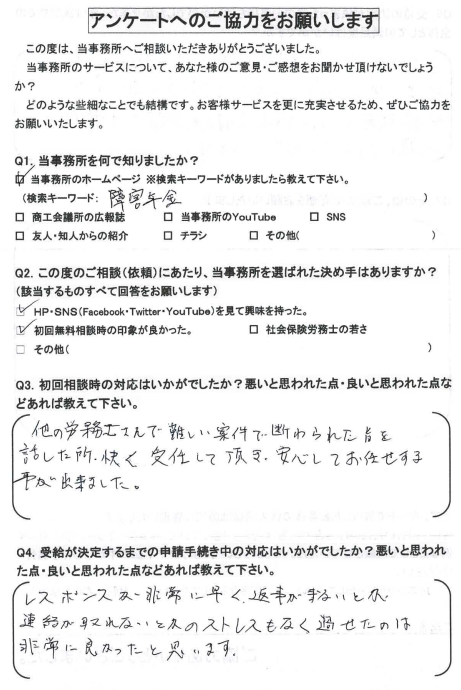 アンケートへのご協力をお願いします
この度は、当事務所へご相談いただきありがとうございました。
当事務所のサービスについて、あなた様のご意見・ご感想をお聞かせ頂けないでしょう
か？
どのような些細なことでも結構です。お客様サービスを更に充実させるため、ぜひご協力を
お願いいたします。
Q1. 当事務所を何で知りましたか？
☑ 当事務所のホームページ ※検索キーワードがありましたら教えて下さい。
（検索キーワード： 障害年金 ）
□ 商工会議所の広報誌 □ 当事務所のYouTube □ SNS
□ 友人・知人からの紹介 □ チラシ □ その他( )
Q2. この度のご相談（依頼）にあたり、当事務所を選ばれた決め手はありますか？
（該当するものすべて回答をお願いします）
☑ HP・SNS（Facebook・Twitter・YouTube）を見て興味を持った。
☑ 初回無料相談時の印象が良かった。 □ 社会保険労務士の若さ
□ その他( )
Q3. 初回相談時の対応はいかがでしたか？悪いと思われた点・良いと思われた点な
どあれば教えて下さい。
他の労務士さんで難しい案件で断わられた旨を
話した所、快く受任して頂き、安心してお任せする
事が出来ました。
Q4. 受給が決定するまでの申請手続き中の対応はいかがでしたか？悪いと思われ
た点・良いと思われた点などあれば教えて下さい。
レスポンスが非常に早く、返事がまないとか
連絡が取れないとかのストレスもなく過せたのは
非常に良かったと思います。